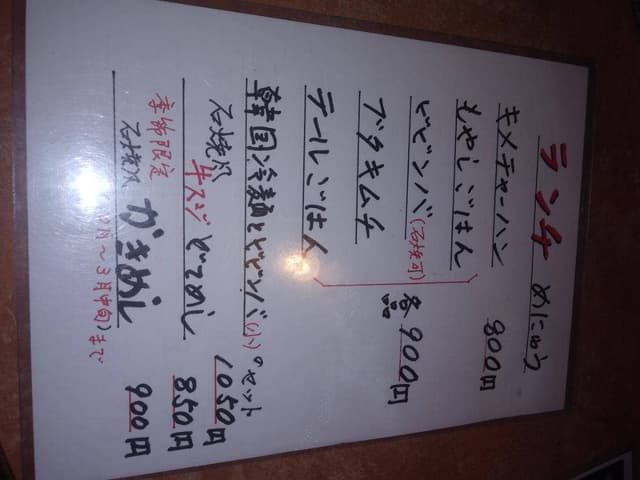 ランチ めにゅう
キメチャーハン 800円
もやしごはん
ビビンバ(石焼可)
ブタキムチ
テールごはん
各品 900円
韓国冷麺とビビンバ(小)のセット 1050円
石焼風 牛スジどてめし 850円
季節限定
石焼風 かきめし 900円
月〜3月中旬)まで